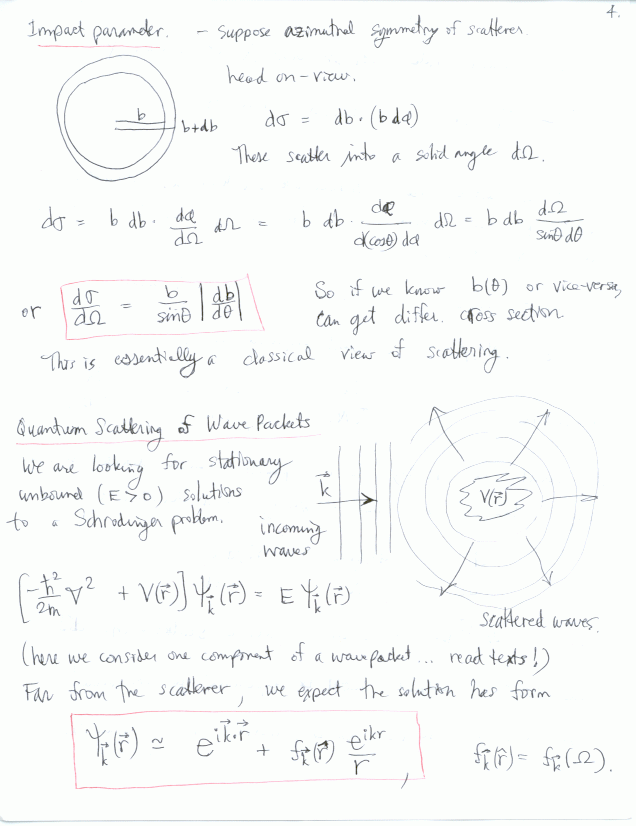 4.
Impact parameter. – Suppose azimuthal symmetry of scatterer
head on-view.
b
b+db
dσ = db·(b dφ)
These scatter into a solid angle dΩ.
dσ = b db · dφ/dΩ dΩ = b db · dφ/(d(cosθ) dφ) dΩ = b db dΩ/(sinθ dθ)
or dσ/dΩ = b/sinθ |db/dθ|
So if we know b(θ) or vice-versa,
can get differ. cross section
This is essentially a classical view of scattering.
Quantum Scattering of Wave Packets
We are looking for stationary
unbound (E>0) solutions
to a Schrodinger problem.
k⃗
incoming
waves
V(r⃗)
[-ħ²/2m ∇² + V(r⃗)] ψ_k⃗(r⃗) = E ψ_k⃗(r⃗)
scattered waves.
(here we consider one component of a wavepacket... read texts!)
Far from the scatterer, we expect the solution has form
ψ_k⃗(r⃗) ≃ e^{ik⃗·r⃗} + f_k⃗(r̂) e^{ikr}/r ,
f_k⃗(r̂) = f_k⃗(Ω).